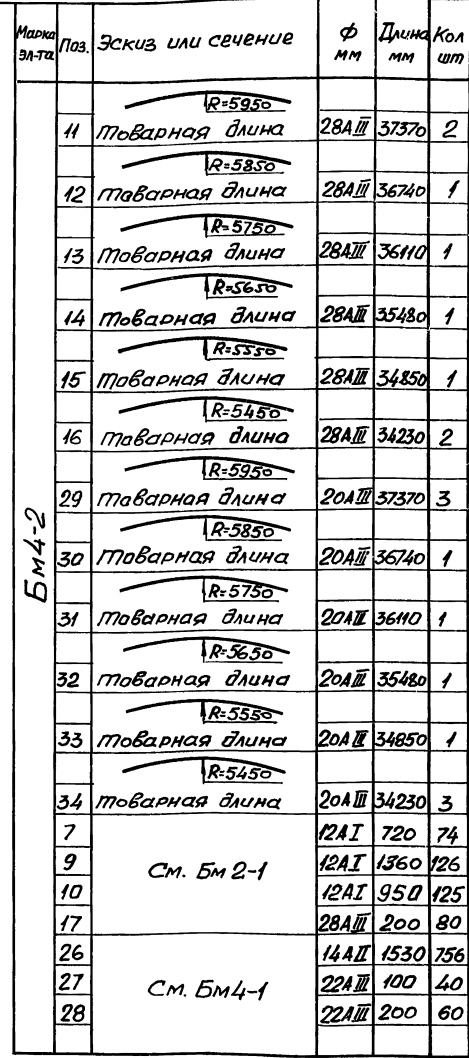 Марка эл-та Поз. Эскиз или сечение ф мм Длина мм Кол шт
Бм4-2
R=5950
11 Товарная длина 28АIII 37370 2
R=5850
12 товарная длина 28АIII 36740 1
R=5750
13 товарная длина 28АIII 36110 1
R=5650
14 товарная длина 28АIII 35480 1
R=5550
15 товарная длина 28АIII 34850 1
R=5450
16 товарная длина 28АIII 34230 2
R=5950
29 товарная длина 20АIII 37370 3
R=5850
30 товарная длина 20АIII 36740 1
R=5750
31 товарная длина 20АIII 36110 1
R=5650
32 товарная длина 20АIII 35480 1
R=5550
33 товарная длина 20АIII 34850 1
R=5450
34 товарная длина 20АIII 34230 3
7 12АI 720 74
9 См. Бм 2-1 12АI 1360 126
10 12АI 950 125
17 28АIII 200 80
26 14АII 1530 756
27 См. Бм4-1 22АIII 100 40
28 22АIII 200 60